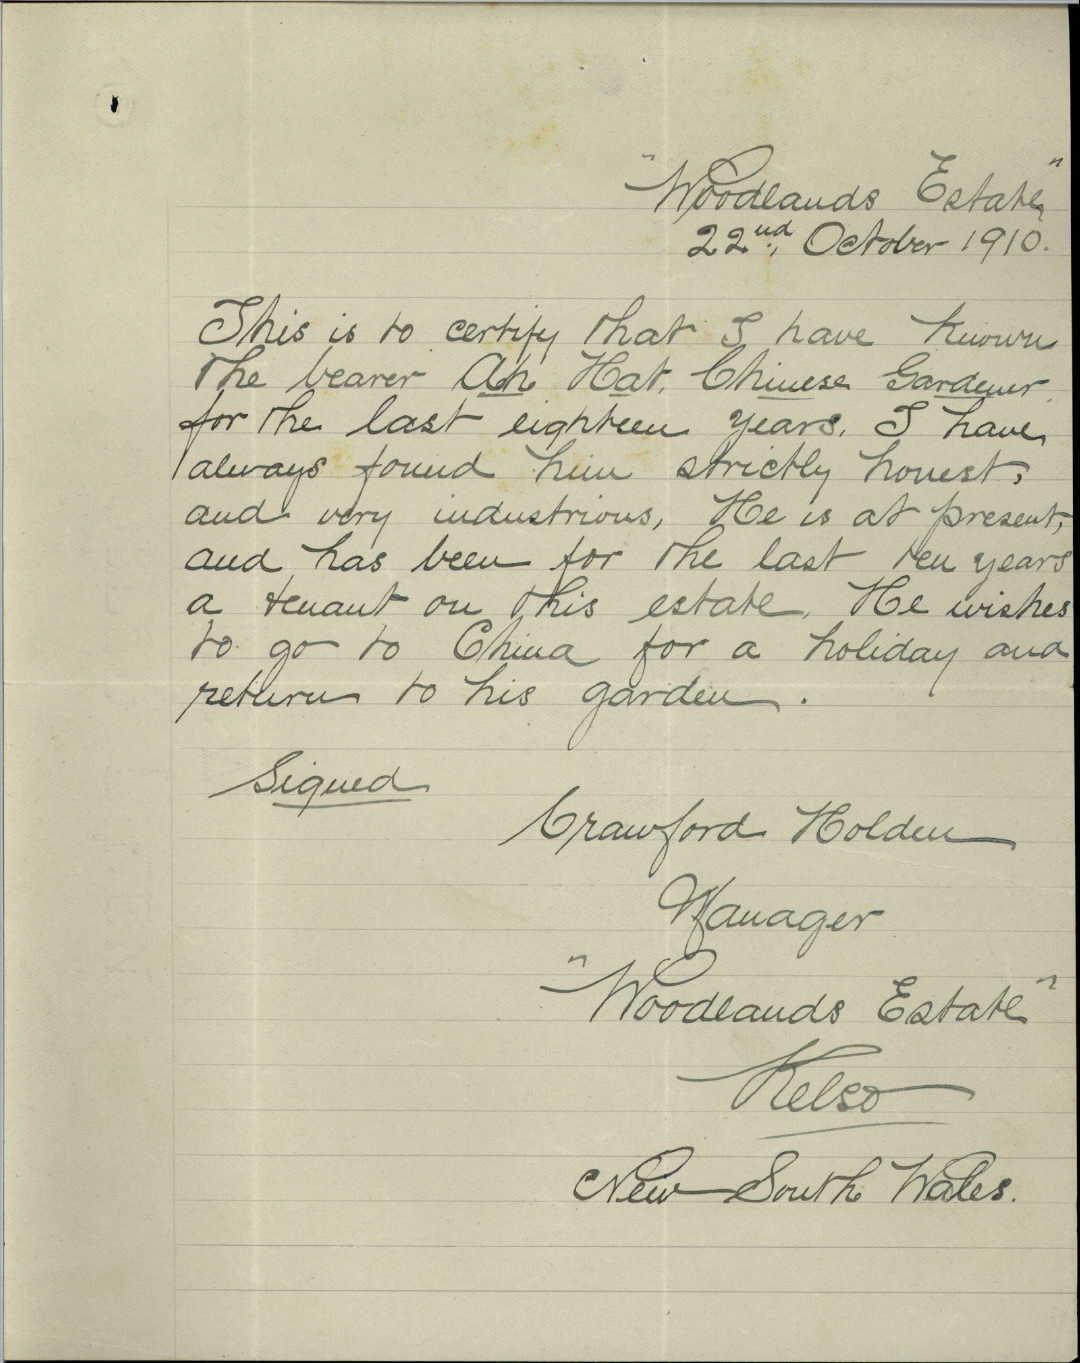 "Woodlands Estate"
22nd, October 1910.
This is to certify that I have known
the bearer Ah Hat, Chinese Gardener,
for the last eighteen years. I have
always found him strictly honest,
and very industrious, He is at present,
and has been for the last ten years
a tenant on this estate. He wishes
to go to China for a holiday and
return to his garden.
Signed
Crawford Holden
Manager
"Woodlands Estate"
Kelso
New South Wales.